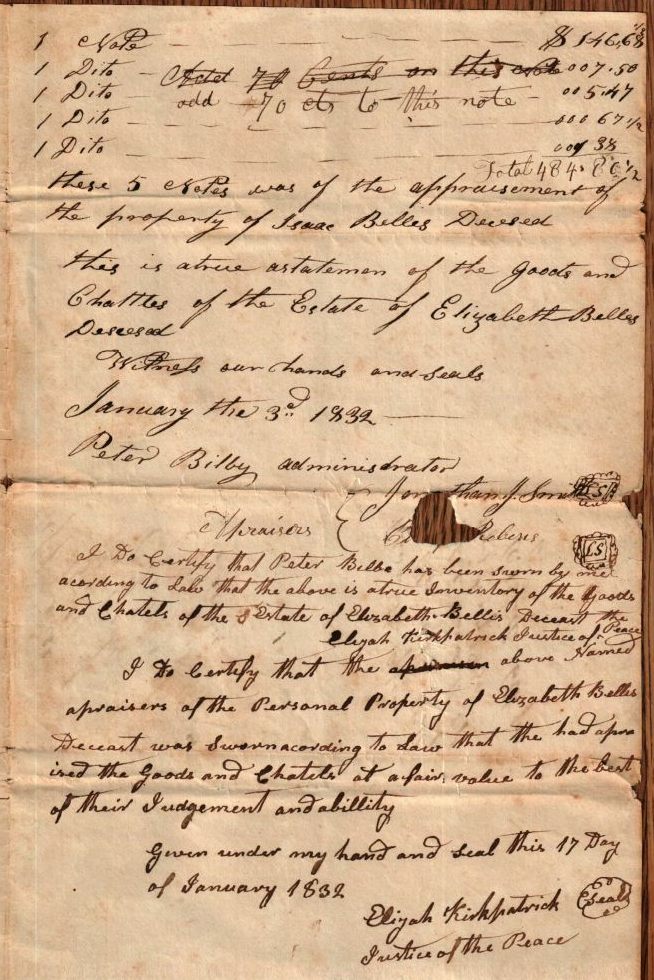 1 Note — — — $ 146.68
1 Dito — Add 70 Cents on this note 007.50
1 Dito — add 70 cts to this note — 005.47
1 Dito — — — 000 67 1/2
1 Dito — — — 38
Total 484.
these 5 Notes was of the appraisement of
the property of Isaac Belles Decesed
this is atrue astatemen of the goods and
Chattles of the Estate of Elizabeth Belles
Desesed
Witness our hands and seals
January the 3d 1832 —
Peter Bilby administrator
Jonathan J. Smith LS
Apraisers { Roberts LS
I Do Certify that Peter Belbe has been sworn by me
acording to Law that the above is atrue Inventory of the Goods
and Chatels of the Estate of Elizabeth Bellis Deceast the
Elijah Kirkpatrick Justice of Peace
I Do Certify that the above Named
apraisers of the Personal Property of Elizabeth Belles
Deceast was Sworn acording to Law that the had apra
ised the Goods and Chatels at a fair value to the best
of their Judgement and abillity
Given under my hand and Seal this 17 Day
of January 1832
Elijah Kirkpatrick Seal
Justice of the Peace